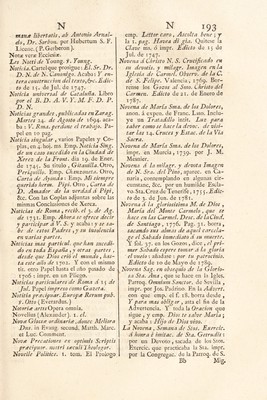 N
N
193
mana libertatis, ab Antonio Arnal-
do, Dr. Sorbon. per Hubertum S. F.
Licore, (F. Gerberon.)
Nota vera Ecclesiæ.
Les Nuits de Young. 5 Young.
Noticia. Cartelapo prosiguec. El Sr. Dr.
D. N. de N. Canonigo. Acaba: Y en-
tera construccion del texto, &c. Edic-
to de 11. de Jul. de 1747.
Noticia universal de Cataluña. Libro
por el B. D. A. V. Y. M. F. D. P.
D. N.
Noticias grandes, publicadas en Zarag.
Martes 24. de Agosto de 1694. aca-
ba: V. Rma. perdone el trabajo. Pa-
pel en 10. pag.
Noticia singular, varios Papeles y Co-
plas, en 4. hoj. en emp. Noticia Sing.
de un caso sucedido en la Ciudad de
Xerez de la Front. dia 19. de Ener.
de 1741. Su titulo, Gitanilla Oran.
Periquillo. Emp. Chamuzero. Otro,
Carta de Ajenda: Emp. Mi siempre
querido herm. Pipi. Otro, Carta de
D. Amador de la verdad á Pipi,
&c. Con las Coplas adjuntas sobre las
mismas Conclusiones de Norica.
Noticias de Roma, recib. el 3. de Ag.
de 1731. Emp. Ahora se ofrece decir
y participar á V. S. y acaba: y es ar-
did de estos Padres, y en insolencia
en varias partes.
Noticias mas particul. que han sucedi-
do en toda España, y otras partes
desde que Dios crió el mundo, has-
ta este año de 1701. Y con el mismo
tit. otro Papel hasta el año pasado de
1706: impr. en un Pliego.
Noticias particulares de Roma á 13 de
Jul. Papel impreso como Gazeta.
Notitia precipuar. Europa Rerum pub.
1. Otto (Everardus.)
Notorica artis Opera omnia.
Novelliet (Alexander) 1. el.
Nova Glossa ordinaria, donec Meliora
Det. in Evang. second. Marth. Marc.
et Luc. Comment.
Nova Precationes ex optimis Scriptis
præcipuor. nostri sæculi Theologor.
Novelle Politice. 1. tom. El Prologo
emp. Lettor caro, Ascolta bene: y
la 1. pag. Hanno di gia. Quitese la
Clave ms. ó impr. Edicto de 13 de
Jul. de 1747.
Novena á Christo N. S. Crucificado en
su devota y milagr. Imagen en la
Iglesia de Carmel. Observ. de la C.
de S. Felipe. Valencia, 1769. Bor-
rense los Gozos al Smo. Christo del
Carmen. Edicto de 21. de Enero de
1787.
Novena de María Sma. de los Dolores,
anon. á expen. de Franc. Lam. Inclu-
ye un Tratadillo intit. Luz para
saber como se hace la devoc. de visi-
tar las 14. Cruces y Estac. de la Via
Sacra.
Novena de María Sma. de los Dolores,
impr. en Murcia, 1739. por J. M.
Mesnier.
Novena á la milagr. y devota Imagen
de N. Sra. del Pino, aparec. en Ca-
naria, contemplando en algunas cir-
cunstanc. &c. por un humilde Escla-
vo. Sta. Cruz de Tenerife, 1753. Edic-
to de 9. de Jun. de 1781.
Novena á la gloriosisima M. de Dios,
María del Monte Carmelo, que se
hace en las Carmel. Desc. de la Ciud.
de Santiago, 1776. Pag. 3. bórr.
sacando sus almas de aquella carcele-
ria el Sabado inmediato á su muerte.
Y fol. 37. en los Gozos, dice, el pri-
mer Sabado espera tomar á la gloria
el vuelo: añadase: por tu patrocin.
Edicto de 10. de Mayo de 1789.
Novena Sag. en obsequio de la Glorio-
sa Sta. Ana, que se hace en la Iglesia
Patroq. Omnium Sanctor. de Sevilla,
impr. por Jos. Padrino. En la Advert.
con que emp. el f. 18. borra desde,
Y para mas obligar, ata el fin de la
Advertencia. Y toda la Oracion que
sigue, y emp. Dios te salve María,
y acaba: Hijo de Dios vivo.
La Novena, Semana de Stas. Exercic.
A honra é imitac. de Sta. Gertrudis
por un Devoto, sacada de los lent.
Exercic. que practicaba la Sta. impr.
por la Congregac. de la Parroq. de S.
Bb
Mig.